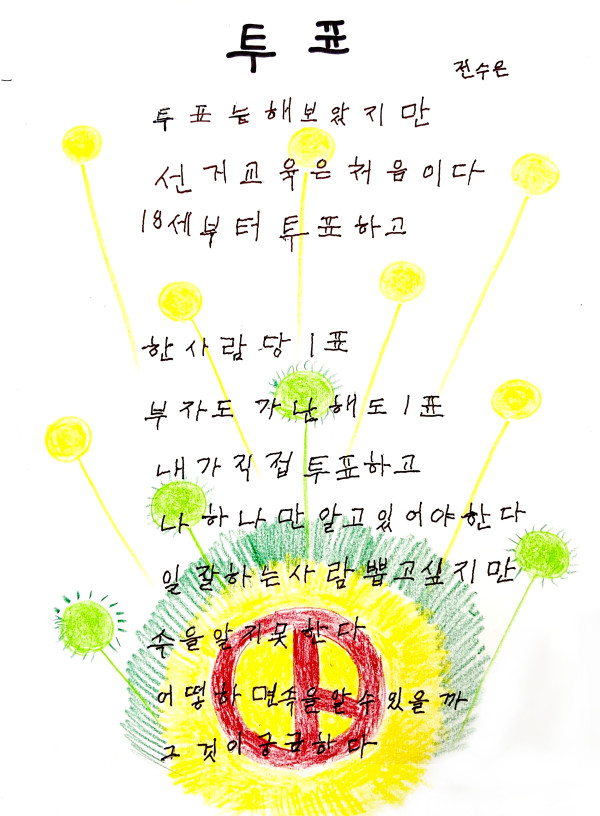 투표
전수은
투표는해보았지만
선거교육은처음이다
18세부터 투표하고
한사람당 1표
부자도 가난해도 1표
내가직접투표하고
나하나만알고있어야한다
일잘하는사람뽑고싶지만
속을알지못한다
어떻하면속을알수있을까
그것이궁금하다